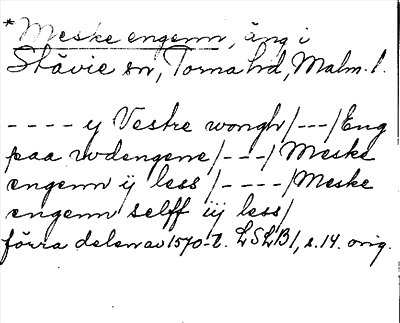 *Meske engenn, äng i
Stävie sn, Torna hd, Malm. l.
---- y Vestre wongh/---/Eng
paa udengene/---/Meske
engenn ij less/----/Meske
engenn selff iij less/
förra delen av 1570-t. LSLB1, s. 14. orig.